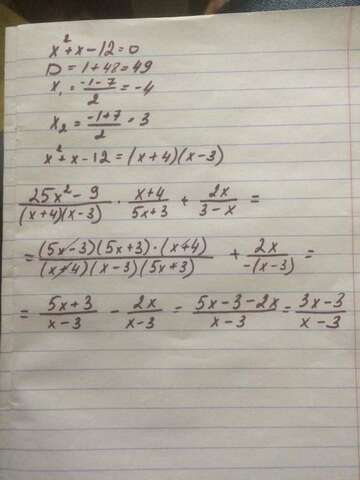 x²+x-12=0
D=1+48=49
x₁=(-1-7)/2=-4
x₂=(-1+7)/2=3
x²+x-12=(x+4)(x-3)
(25x²-9)/((x+4)(x-3)) · (x+4)/(5x+3) + 2x/(3-x) =
= ((5x-3)(5x+3)·(x+4))/((x+4)(x-3)(5x+3)) + 2x/(-(x-3)) =
= (5x+3)/(x-3) - 2x/(x-3) = (5x-3-2x)/(x-3) = (3x-3)/(x-3)